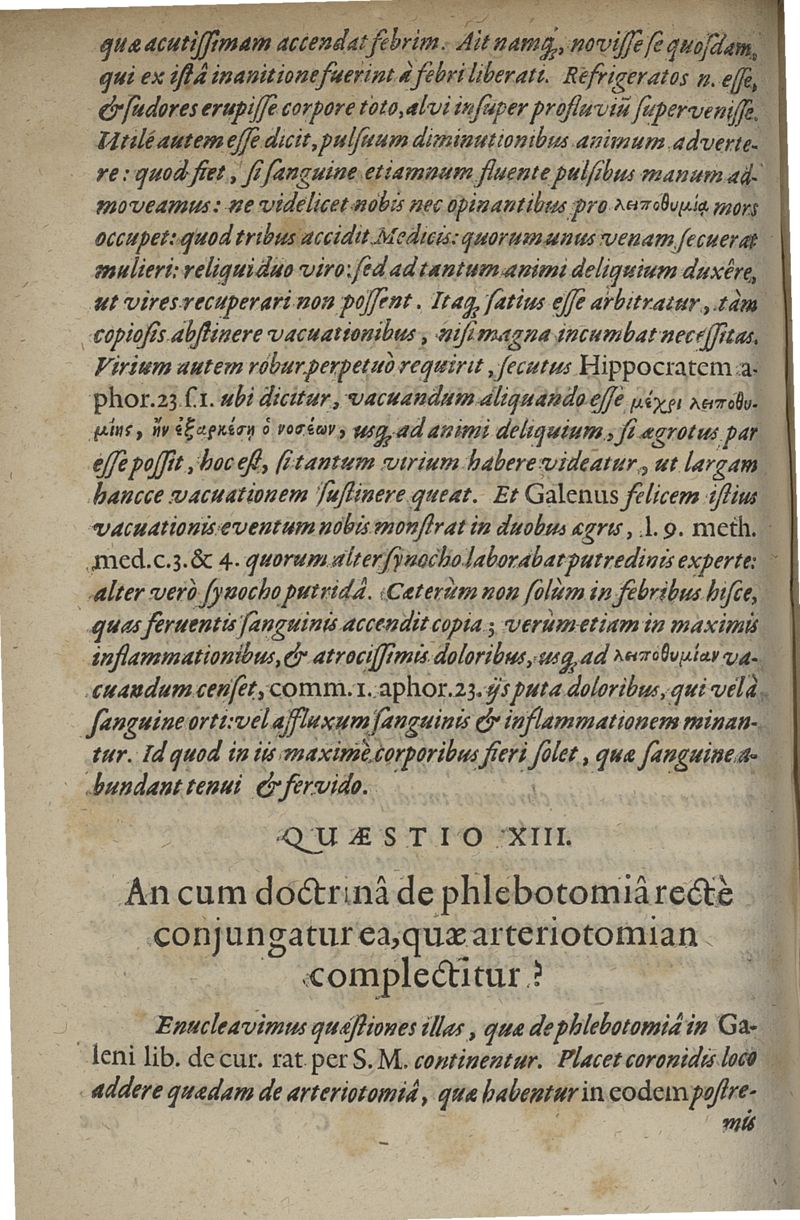 quæ acutissimam accendat febrim. Ait namq́;, novisse se quosdam,
qui ex istâ inanitione fuerint à febri liberati. Refrigeratos n. esse,
& sudores erupisse corpore toto, alvi insuper profluviũ supervenisse.
Utile autem esse dicit, pulsuum diminutionibus animum adverte-
re: quod fiet, si sanguine etiamnum fluente pulsibus manum ad-
moveamus: ne videlicet nobis nec opinantibus pro λειποθυμίᾳ mors
occupet: quod tribus accidit Medicis: quorum unus venam secuerat
mulieri: reliqui duo viro: sed ad tantum animi deliquium duxêre,
ut vires recuperari non possent. Itaq́; satius esse arbitratur, tàm
copiosis abstinere vacuationibus, nisi magna incumbat necessitas.
Virium autem robur perpetuò requirit, secutus Hippocratem a-
phor. 23 s. 1. ubi dicitur, vacuandum aliquando esse μέχρι λειποθυ-
μίης, ἢν ἐξαρκέῃ ὁ νοσέων, usq; ad animi deliquium, si ægrotus par
esse possit, hoc est, si tantum virium habere videatur, ut largam
hancce vacuationem sustinere queat. Et Galenus felicem istius
vacuationis eventum nobis monstrat in duobus ægris, l. 9. meth.
med. c. 3. & 4. quorum alter synocho laborabat putredinis experte:
alter verò synocho putridâ. Cæterùm non solùm in febribus hisce,
quas feruentis sanguinis accendit copia; verùm etiam in maximis
inflammationibus, & atrocissimis doloribus, usq́; ad λειποθυμίαν va-
cuandum censet, comm. 1. aphor. 23. ijs puta doloribus, qui vel à
sanguine orti: vel affluxum sanguinis & inflammationem minan-
tur. Id quod in iis maximè corporibus fieri solet, quæ sanguine a-
bundant tenui & fervido.
QUÆSTIO XIII.
An cum doctrinâ de phlebotomiâ rectè
conjungatur ea, quæ arteriotomian
complectitur?
Enucleavimus quæstiones illas, quæ de phlebotomiâ in Ga-
leni lib. de cur. rat per S. M. continentur. Placet coronidis loco
addere quædam de arteriotomiâ, quæ habentur in eodem postre-
mis